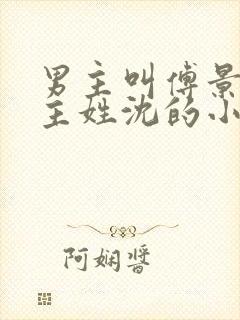 男主叫傅景
主姓沈的小
阿娴酱